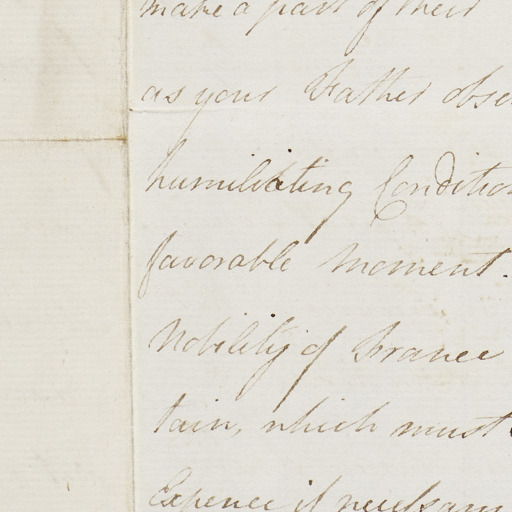 make a part of their
as your Father obse
humiliating Condition
favorable moment.
Nobility of France
tain, which must
Expence if necessary